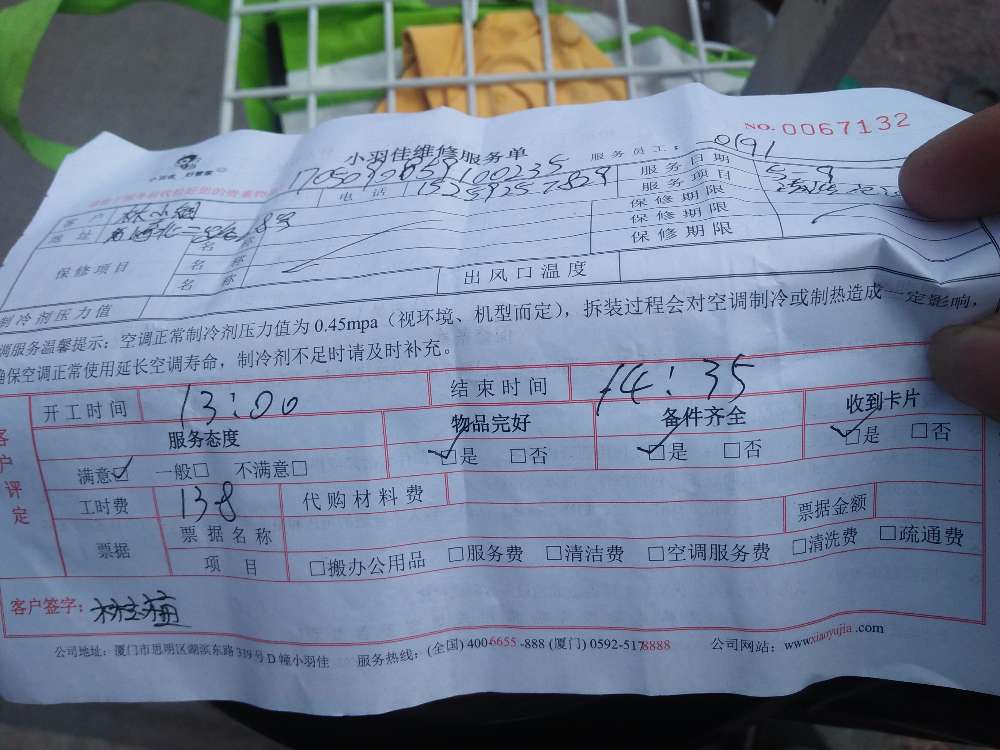 NO. 0067132
小羽佳维修服务单
服务员工: 0191
客户 电话 服务日期 5-9
地址 服务项目
保修项目 名称 保修期限
名称 保修期限
名称 保修期限
制冷剂压力值 出风口温度
调服务温馨提示：空调正常制冷剂压力值为0.45mpa（视环境、机型而定），拆装过程会对空调制冷或制热造成一定影响，
确保空调正常使用延长空调寿命，制冷剂不足时请及时补充。
客户评定
开工时间 13:00 结束时间 14:35
服务态度 物品完好 备件齐全 收到卡片
满意☑ 一般□ 不满意□ ☑是 □否 ☑是 □否 ☑是 □否
工时费 138 代购材料费
票据 票据名称 票据金额
项目 □搬办公用品 □服务费 □清洁费 □空调服务费 □清洗费 □疏通费
客户签字:
公司地址：厦门市思明区湖滨东路319号D幢小羽佳 服务热线：(全国) 400-6655-888 (厦门) 0592-5178888 公司网站：www.xiaoyujia.com